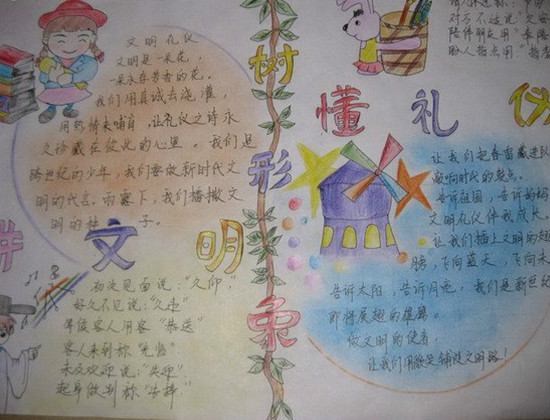 文明礼仪
文明是一朵花,
一朵永存芳香的花。
我们用真诚去浇灌,
用热情来哺育,让礼仪之诗永
久珍藏在彼此的心里。我们是
跨世纪的少年,我们要做新时代文
明的代言。雨露下,我们播撒文
明的种子。
讲文明
初次见面说:“久仰”
好久不见说:“久违”
等候客人用客“恭送”
客人来到称“光临”
未及欢迎说:“失迎”
起身做别称“告辞”
树形象
陪伴朋友用“奉陪
请人指点用“指
懂礼仪
让我们把春雷藏进队
敲响时代的鼓点。
告诉祖国,告诉妈妈
文明礼仪伴我成长。
让我们插上文明的翅
膀,飞向蓝天,飞向未
告诉太阳,告诉月亮,我们是新世纪
即将展翅的雄鹰。
做文明的使者,
让我们用微笑铺设文明路!